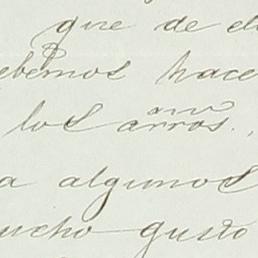 que de el
ebemos hace
los arros.,
a algunos
ucho gusto